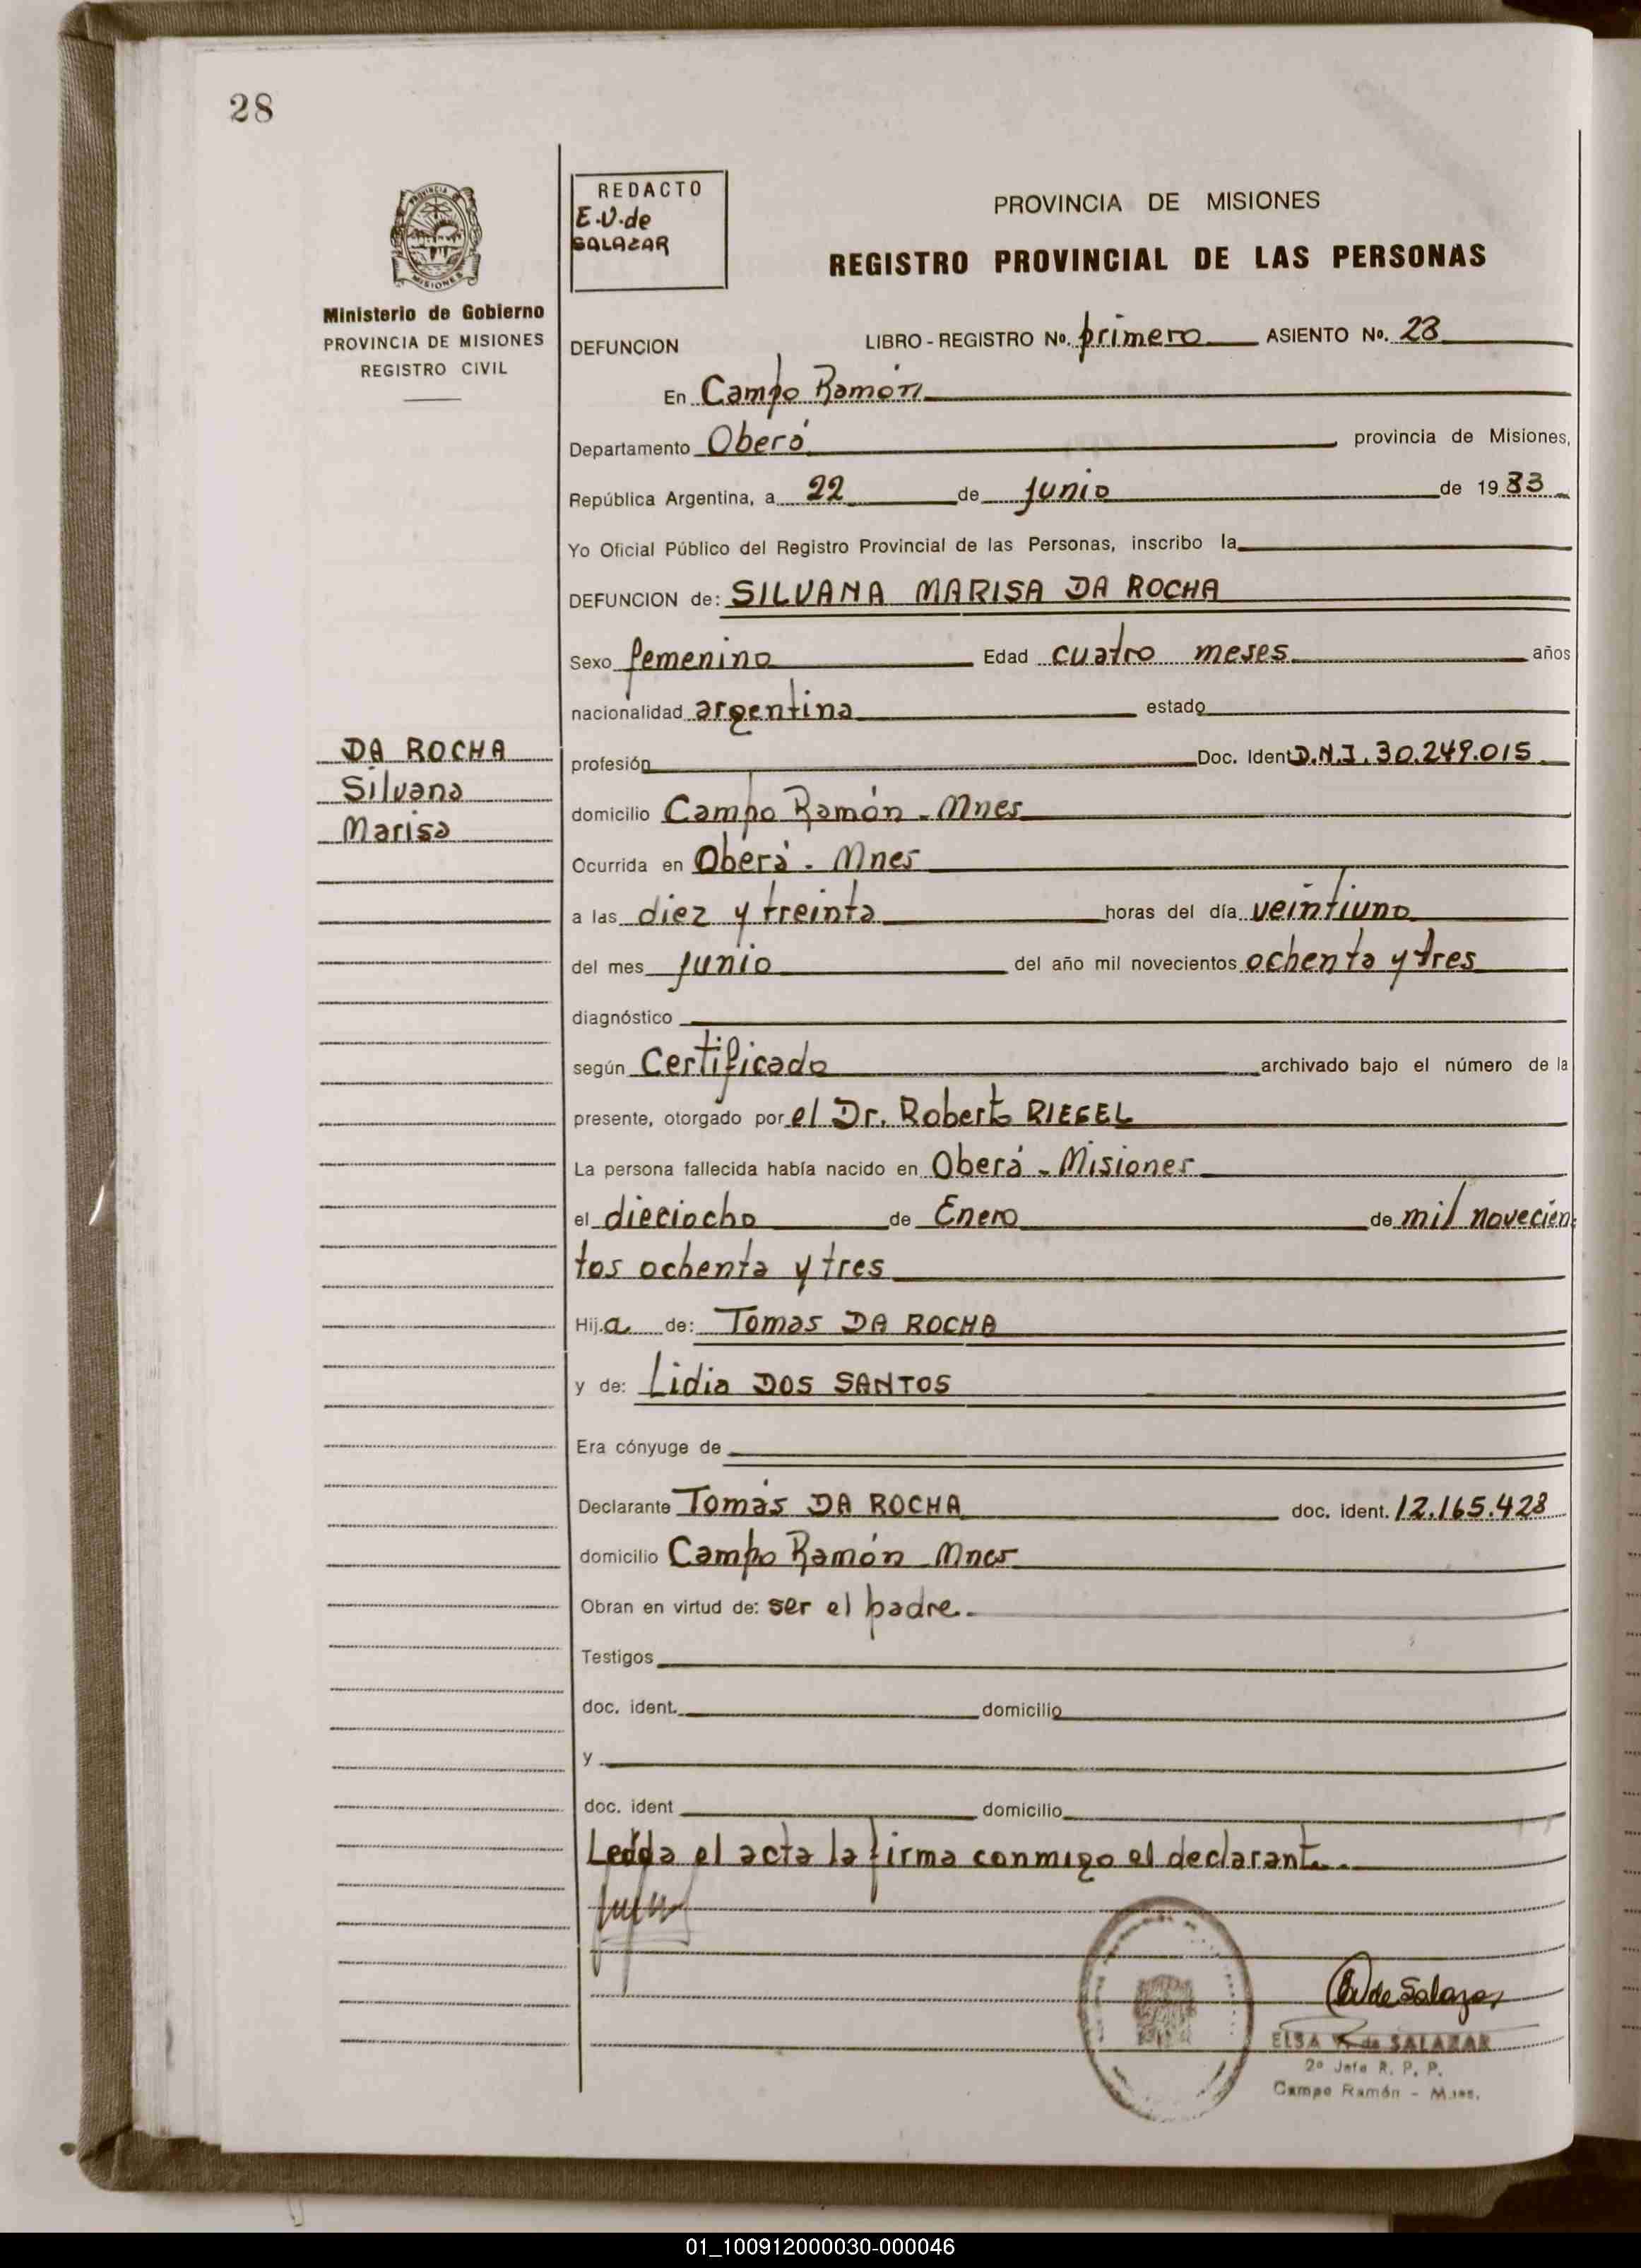 28
REDACTO
E.V. de
SALAZAR
PROVINCIA DE MISIONES
REGISTRO PROVINCIAL DE LAS PERSONAS
Ministerio de Gobierno
PROVINCIA DE MISIONES
REGISTRO CIVIL
DEFUNCION LIBRO - REGISTRO No. primero ASIENTO No. 28
En Campo Ramón
Departamento Oberá provincia de Misiones,
República Argentina, a 22 de junio de 1983
Yo Oficial Público del Registro Provincial de las Personas, inscribo la
DEFUNCION de: SILVANA MARISA DA ROCHA
Sexo femenino Edad cuatro meses años
nacionalidad argentina estado
DA ROCHA
Silvana
Marisa
profesión Doc. Ident D.N.I. 30.249.015
domicilio Campo Ramón - Mnes
Ocurrida en Oberá - Mnes
a las diez y treinta horas del día veintiuno
del mes junio del año mil novecientos ochenta y tres
diagnóstico
según Certificado archivado bajo el número de la
presente, otorgado por el Dr. Roberto RIEGEL
La persona fallecida había nacido en Oberá - Misiones
el dieciocho de Enero de mil novecien
tos ochenta y tres
Hij.a de: Tomas DA ROCHA
y de: Lidia DOS SANTOS
Era cónyuge de
Declarante Tomás DA ROCHA doc. ident. 12.165.428
domicilio Campo Ramón Mnes
Obran en virtud de: ser el padre.-
Testigos
doc. ident. domicilio
y
doc. ident domicilio
Leída el acta la firma conmigo el declarante.-
EV de Salazar
ELSA V. de SALAZAR
2º Jefe R. P. P.
Campo Ramón - Mnes.
01_100912000030-000046